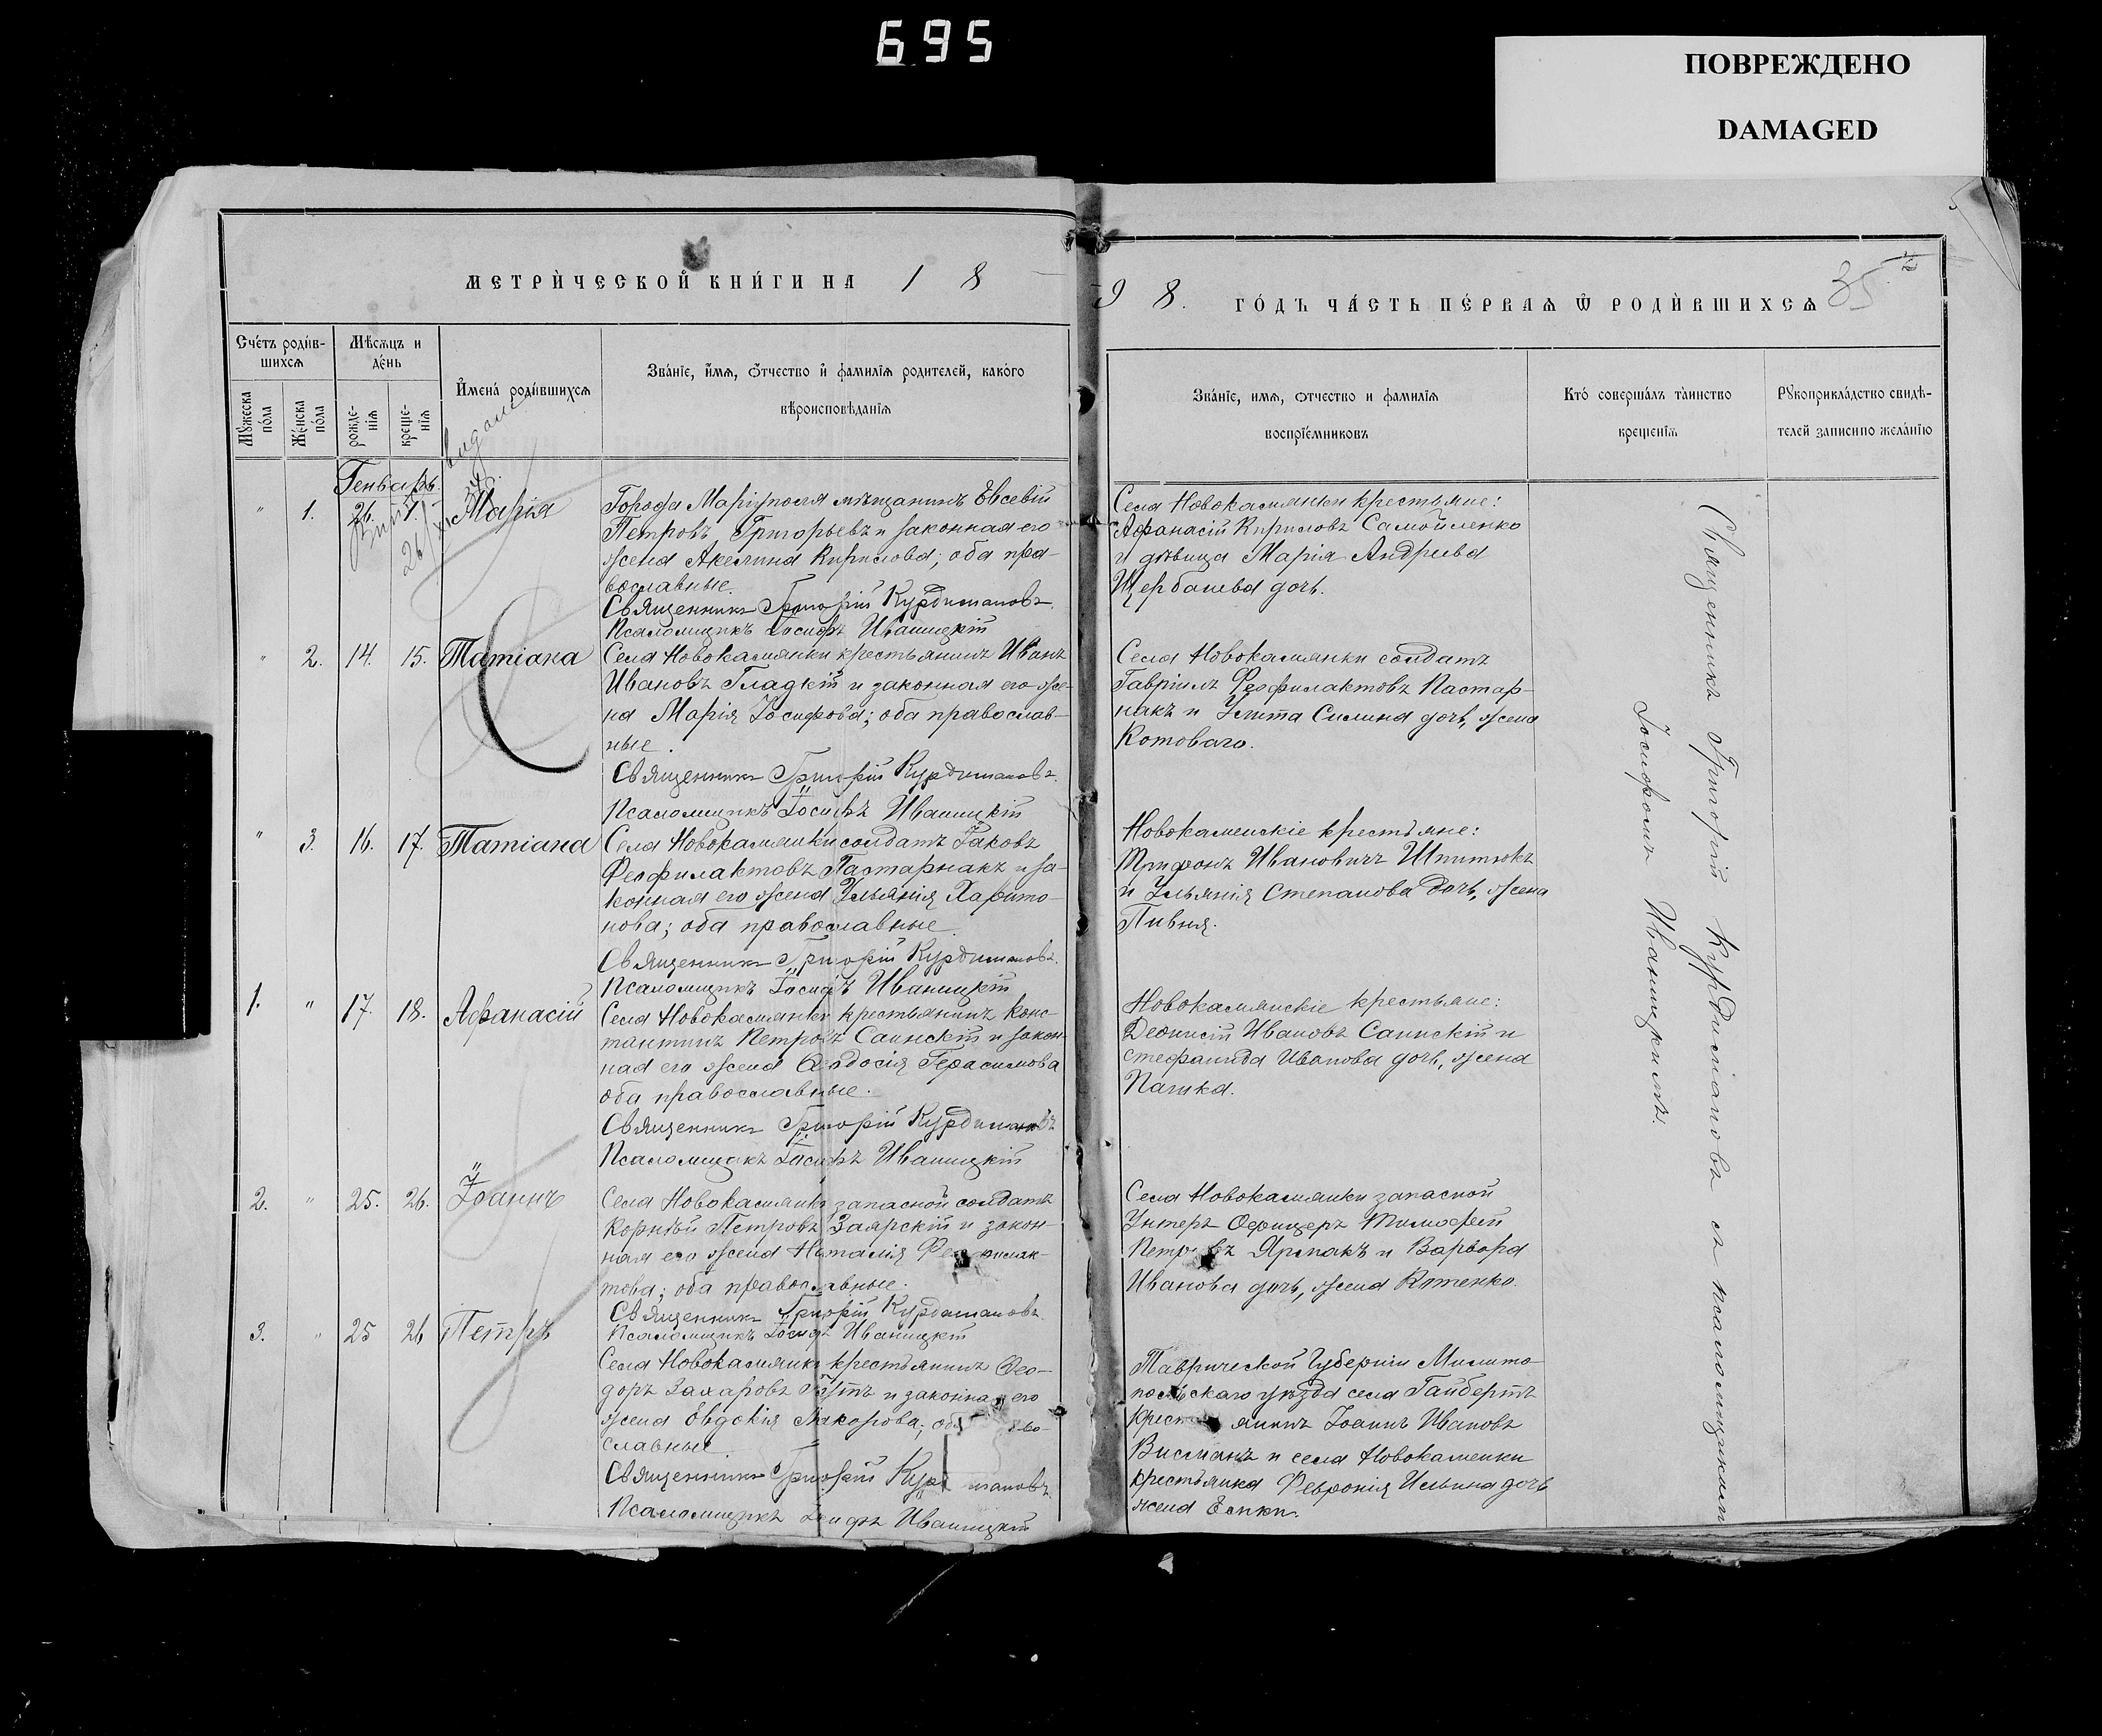 695
ПОВРЕЖДЕНО
DAMAGED
МЕТРИ́ЧЕСКОЙ КНИ́ГИ НА 18
98. ГО́ДЪ ЧА́СТЬ ПЕ́РВАЯ Ѿ РОДИ́ВШИХСЯ
35
Сче́тъ роди́в-
шихся
Мѣсяцъ и
де́нь
Мꙋ́жеска
по́ла
Же́нска
по́ла
рожде-
нія
креще-
нія
И҆мена́ роди́вшихся
Зва́ніе, и҆́мя, ѻ҆́тчество и҆ фамилія родителей, како́го
вѣроисповѣданія
Зва́ніе, имя, ѻтчество и фамилія
воспріе́мниковъ
Кто́ соверша́лъ та́инство
креще́нія
Рꙋкоприкла́дство свидѣ-
телей записи по жела́нію
Генварь.
" 1. 26. 1. Марія
Города Маріуполя мѣщанинъ Евсевій
Петровъ Григорьевъ и законная его
жена Акелина Кирилова; оба пра-
вославные.
Священникъ Григорій Курдиmановъ.
Псаломщикъ Іосифъ Иваницкій
Села Новокамянки крестьяне:
Афанасій Кириловъ Самойленко
и дѣвица Марія Андреева
Щербашева дочь.
" 2. 14. 15. Татіана
Села Новокамянки крестьянинъ Иванъ
Ивановъ Гладкій и законная его же-
на Марія Іосифова; оба православ-
ные.
Священникъ Григорій Курдимановъ.
Псаломщикъ Іосифъ Иваницкій
Села Новокамянки солдатъ
Гавріилъ Феофилактовъ Пастар-
накъ и Улита Силина дочь, жена
Котоваго.
" 3. 16. 17. Татіана
Села Новокамянки солдатъ Іаковъ
Феофилактовъ Пастарнакъ и за-
конная его жена Ульянія Харито-
нова; оба православные.
Священникъ Григорій Курдимановъ.
Псаломщикъ Іосифъ Иваницкій
Новокаменскіе крестьяне:
Трифонъ Ивановичъ
и Ульянія Степанова дочь, жена
Пивня.
1. " 17. 18. Афанасій
Села Новокамянки крестьянинъ Конс-
тантинъ Петровъ и закон-
ная его жена Ѳеодосія Герасимова
оба православные.
Священникъ Григорій Курдимановъ
Псаломщикъ Іосифъ Иваницкій
Новокамянскіе крестьяне:
Деонисій Ивановъ и
Стефанида Иванова дочь, жена
Пашка.
2. " 25. 26. Іоаннъ
Села Новокамянки запасной солдатъ
Корнѣй Петровъ Заярскій и закон-
ная его жена Наталія Феофилак-
това; оба православные.
Священникъ Григорій Курдимановъ.
Псаломщикъ Іосифъ Иваницкій
Села Новокамянки запасной
Унтеръ Офицеръ Тимофей
Петровъ Ярмакъ и Варвара
Иванова дочь, жена Котенко.
3. " 25 26 Петръ
Села Новокамянки крестьянинъ Ѳео-
доръ Захаровъ и законная его
жена Евдокія Макарова; оба
славные.
Священникъ Григорій
Псаломщикъ Іосифъ Иваницкій
Таврической Губерніи Мелито-
польскаго уѣзда села Гайбертъ
крестьянинъ Іоаннъ Ивановъ
Висманъ и села Новокаменки
крестьянка Февронія Ильина дочь
жена
Священникъ Григорій Курдимановъ съ псаломщикомъ
Іосифомъ Иваницкимъ.